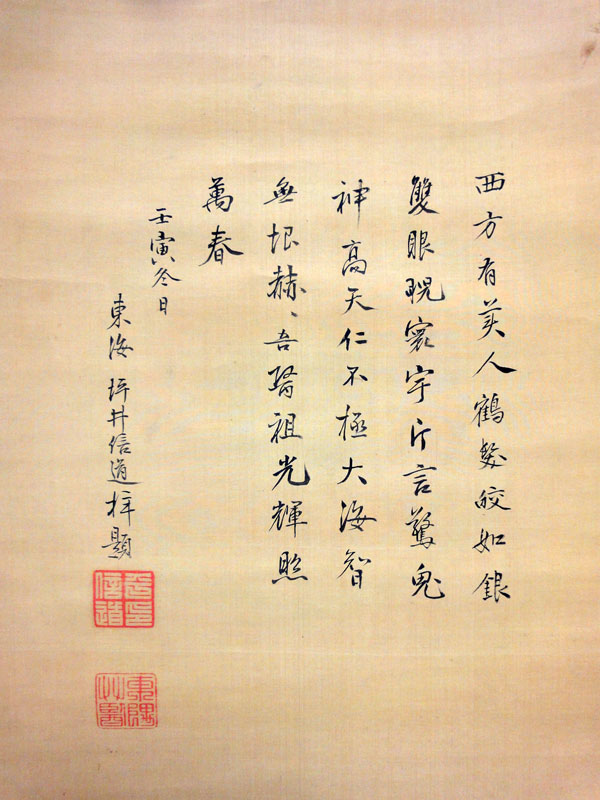 西方有美人鶴髮皎如銀
雙眼睨寰宇片言驚鬼
神高天仁不極大海智
無垠赫〻吾醫祖光輝照
萬春
壬寅冬日
東海 坪井信道拝題